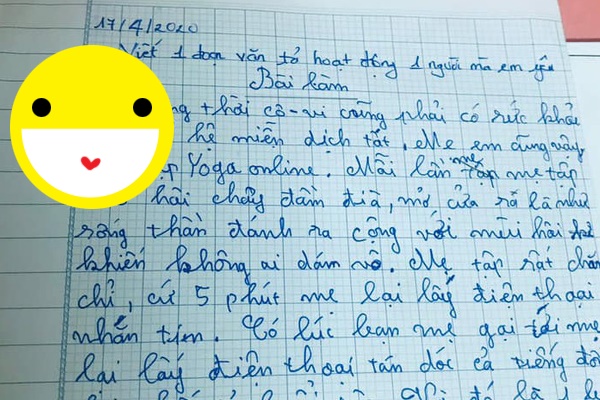 17/4/2020
Viết 1 đoạn văn tả hoạt động 1 người mà em yêu
Bài làm
thời cô-vi cũng phải có sức khỏe
hệ miễn dịch tốt. Mẹ em cũng vậy
Yoga online. Mỗi lần mẹ tập mẹ tập
hôi chảy đầm đìa, mở cửa ra là như
sóng thần đánh ra cộng với mùi hôi
khiến không ai dám vô. Mẹ tập rất chăm
chỉ, cứ 5 phút mẹ lại lấy điện thoại
nhắn tin. Có lúc bạn mẹ gọi tới mẹ
lại lấy điện thoại tán dóc cả tiếng đồ